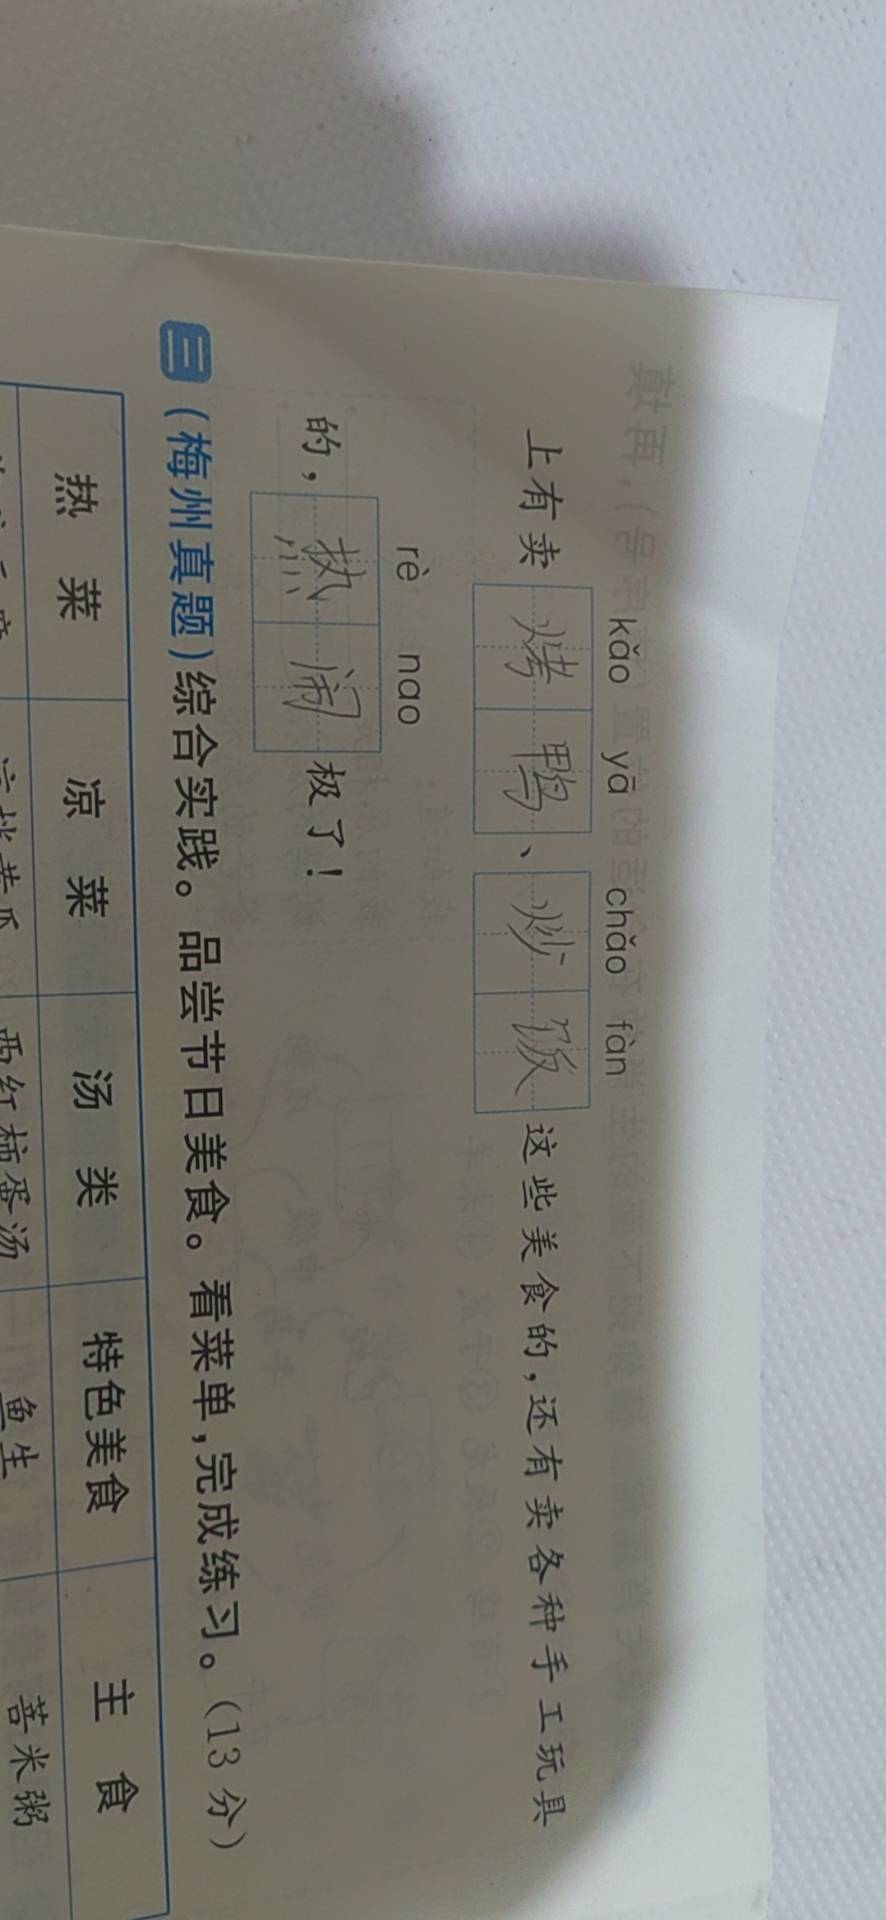 kǎo yā chǎo fàn
上有卖烤鸭、炒饭这些美食的，还有卖各种手工玩具
rè nao
的，热闹极了！
三（梅州真题）综合实践。品尝节日美食。看菜单，完成练习。（13分）
热菜 凉菜 汤类 特色美食 主食
西红柿蛋汤 鱼生 菩米粥